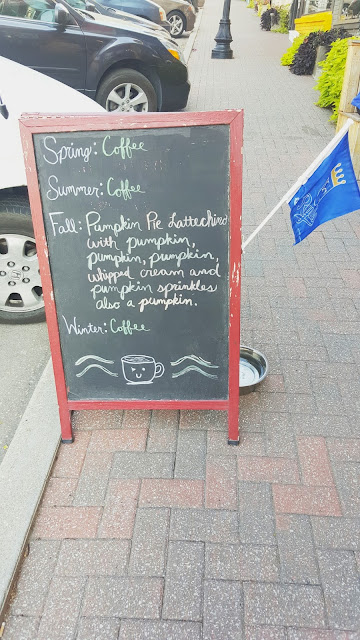 Spring: Coffee
Summer: Coffee
Fall: Pumpkin Pie Lattechino
with pumpkin,
pumpkin, pumpkin,
whipped cream and
pumpkin sprinkles
also a pumpkin.
Winter: Coffee